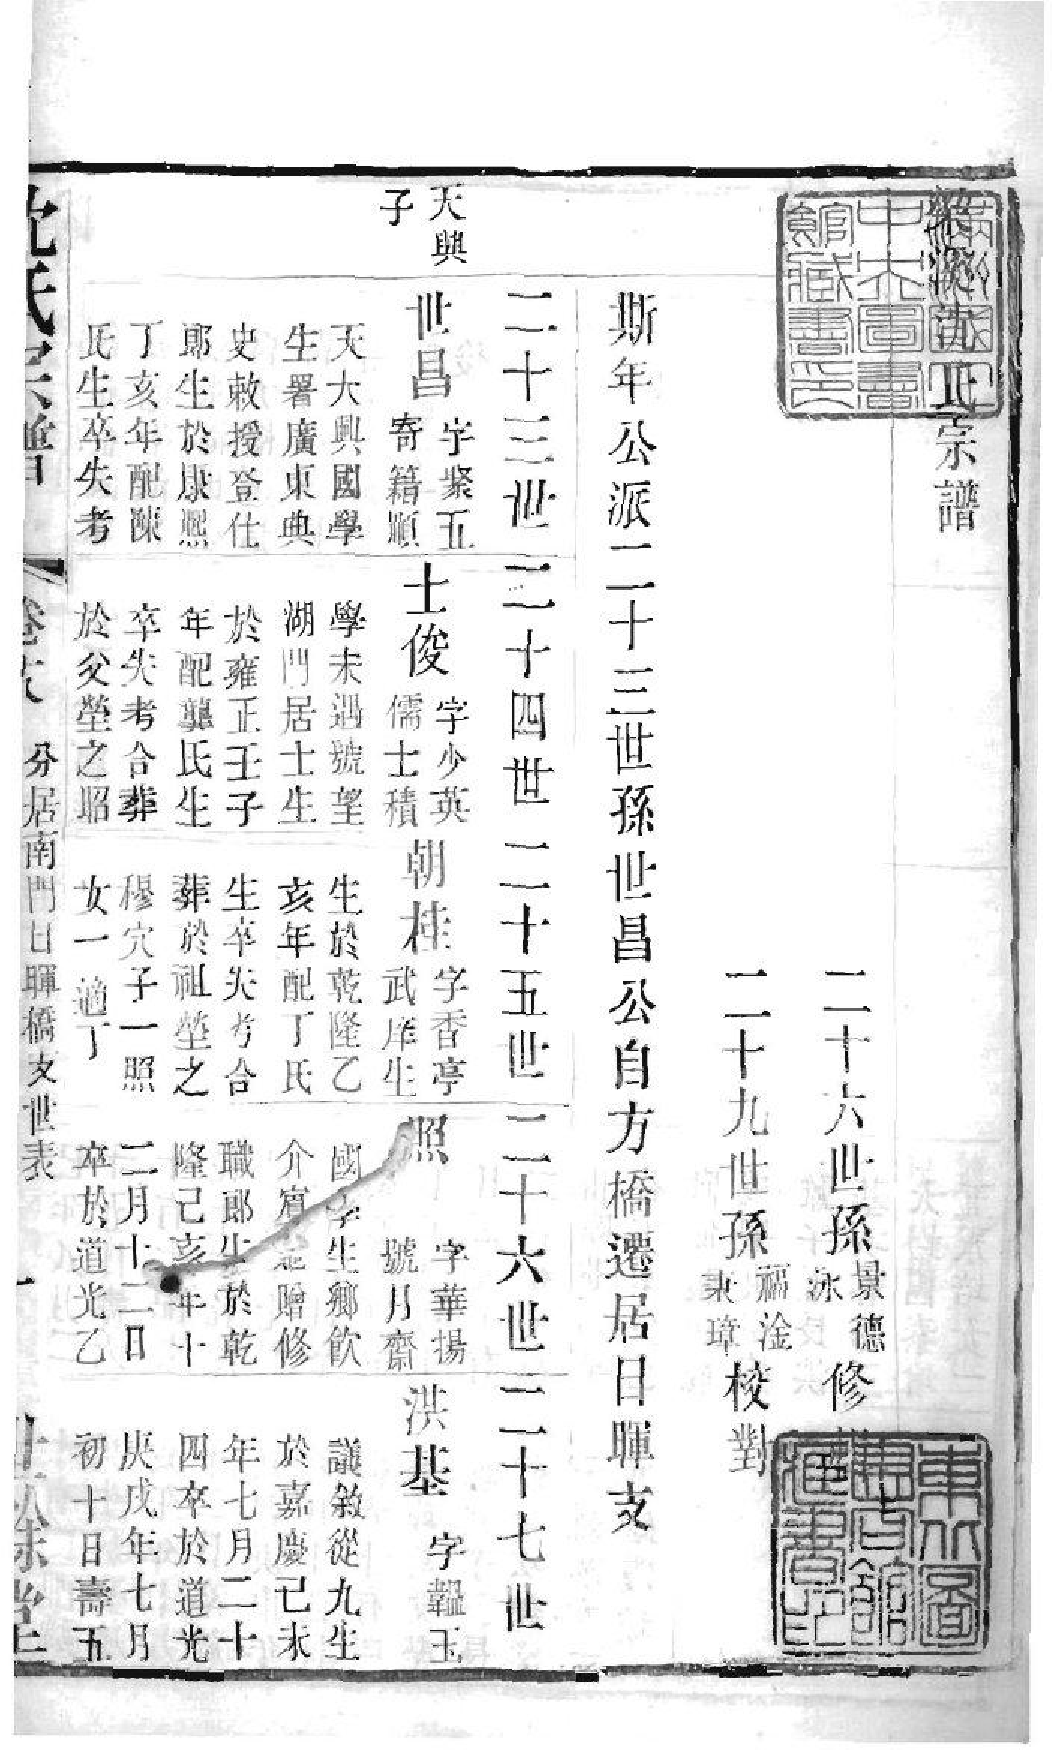 沈氏宗譜
二十六世孫景德泳修
二十九世孫福淦秉璋校對
斯年公派二十三世孫世昌公自方橋遷居日暉支
二十三世
二十四世
二十五世
二十六世
二十七世
天興
子
世昌
字紫五
寄籍順
天大興國學
生署廣東典
史敕授登仕
郎生於康熙
丁亥年配陳
氏生卒失考
士俊
字少英
儒士積
學未遇號望
湖門居士生
於雍正壬子
年配龔氏生
卒失考合葬
於父塋之昭
朝桂
字香亭
武庠生
生於乾隆乙
亥年配丁氏
生卒失考合
葬於祖塋之
穆穴子一照
女一適丁
照
字華揚
號月齋
國學生鄉飲
介賓 贈修
職郎生於乾
隆己亥年十
二月十二日
卒於道光乙
洪基
字韞玉
議敘從九生
於嘉慶己未
年七月二十
四卒於道光
庚戌年七月
初十日壽五
沈氏宗譜
分居南門日暉橋支世表
一
東北圖書館藏書印